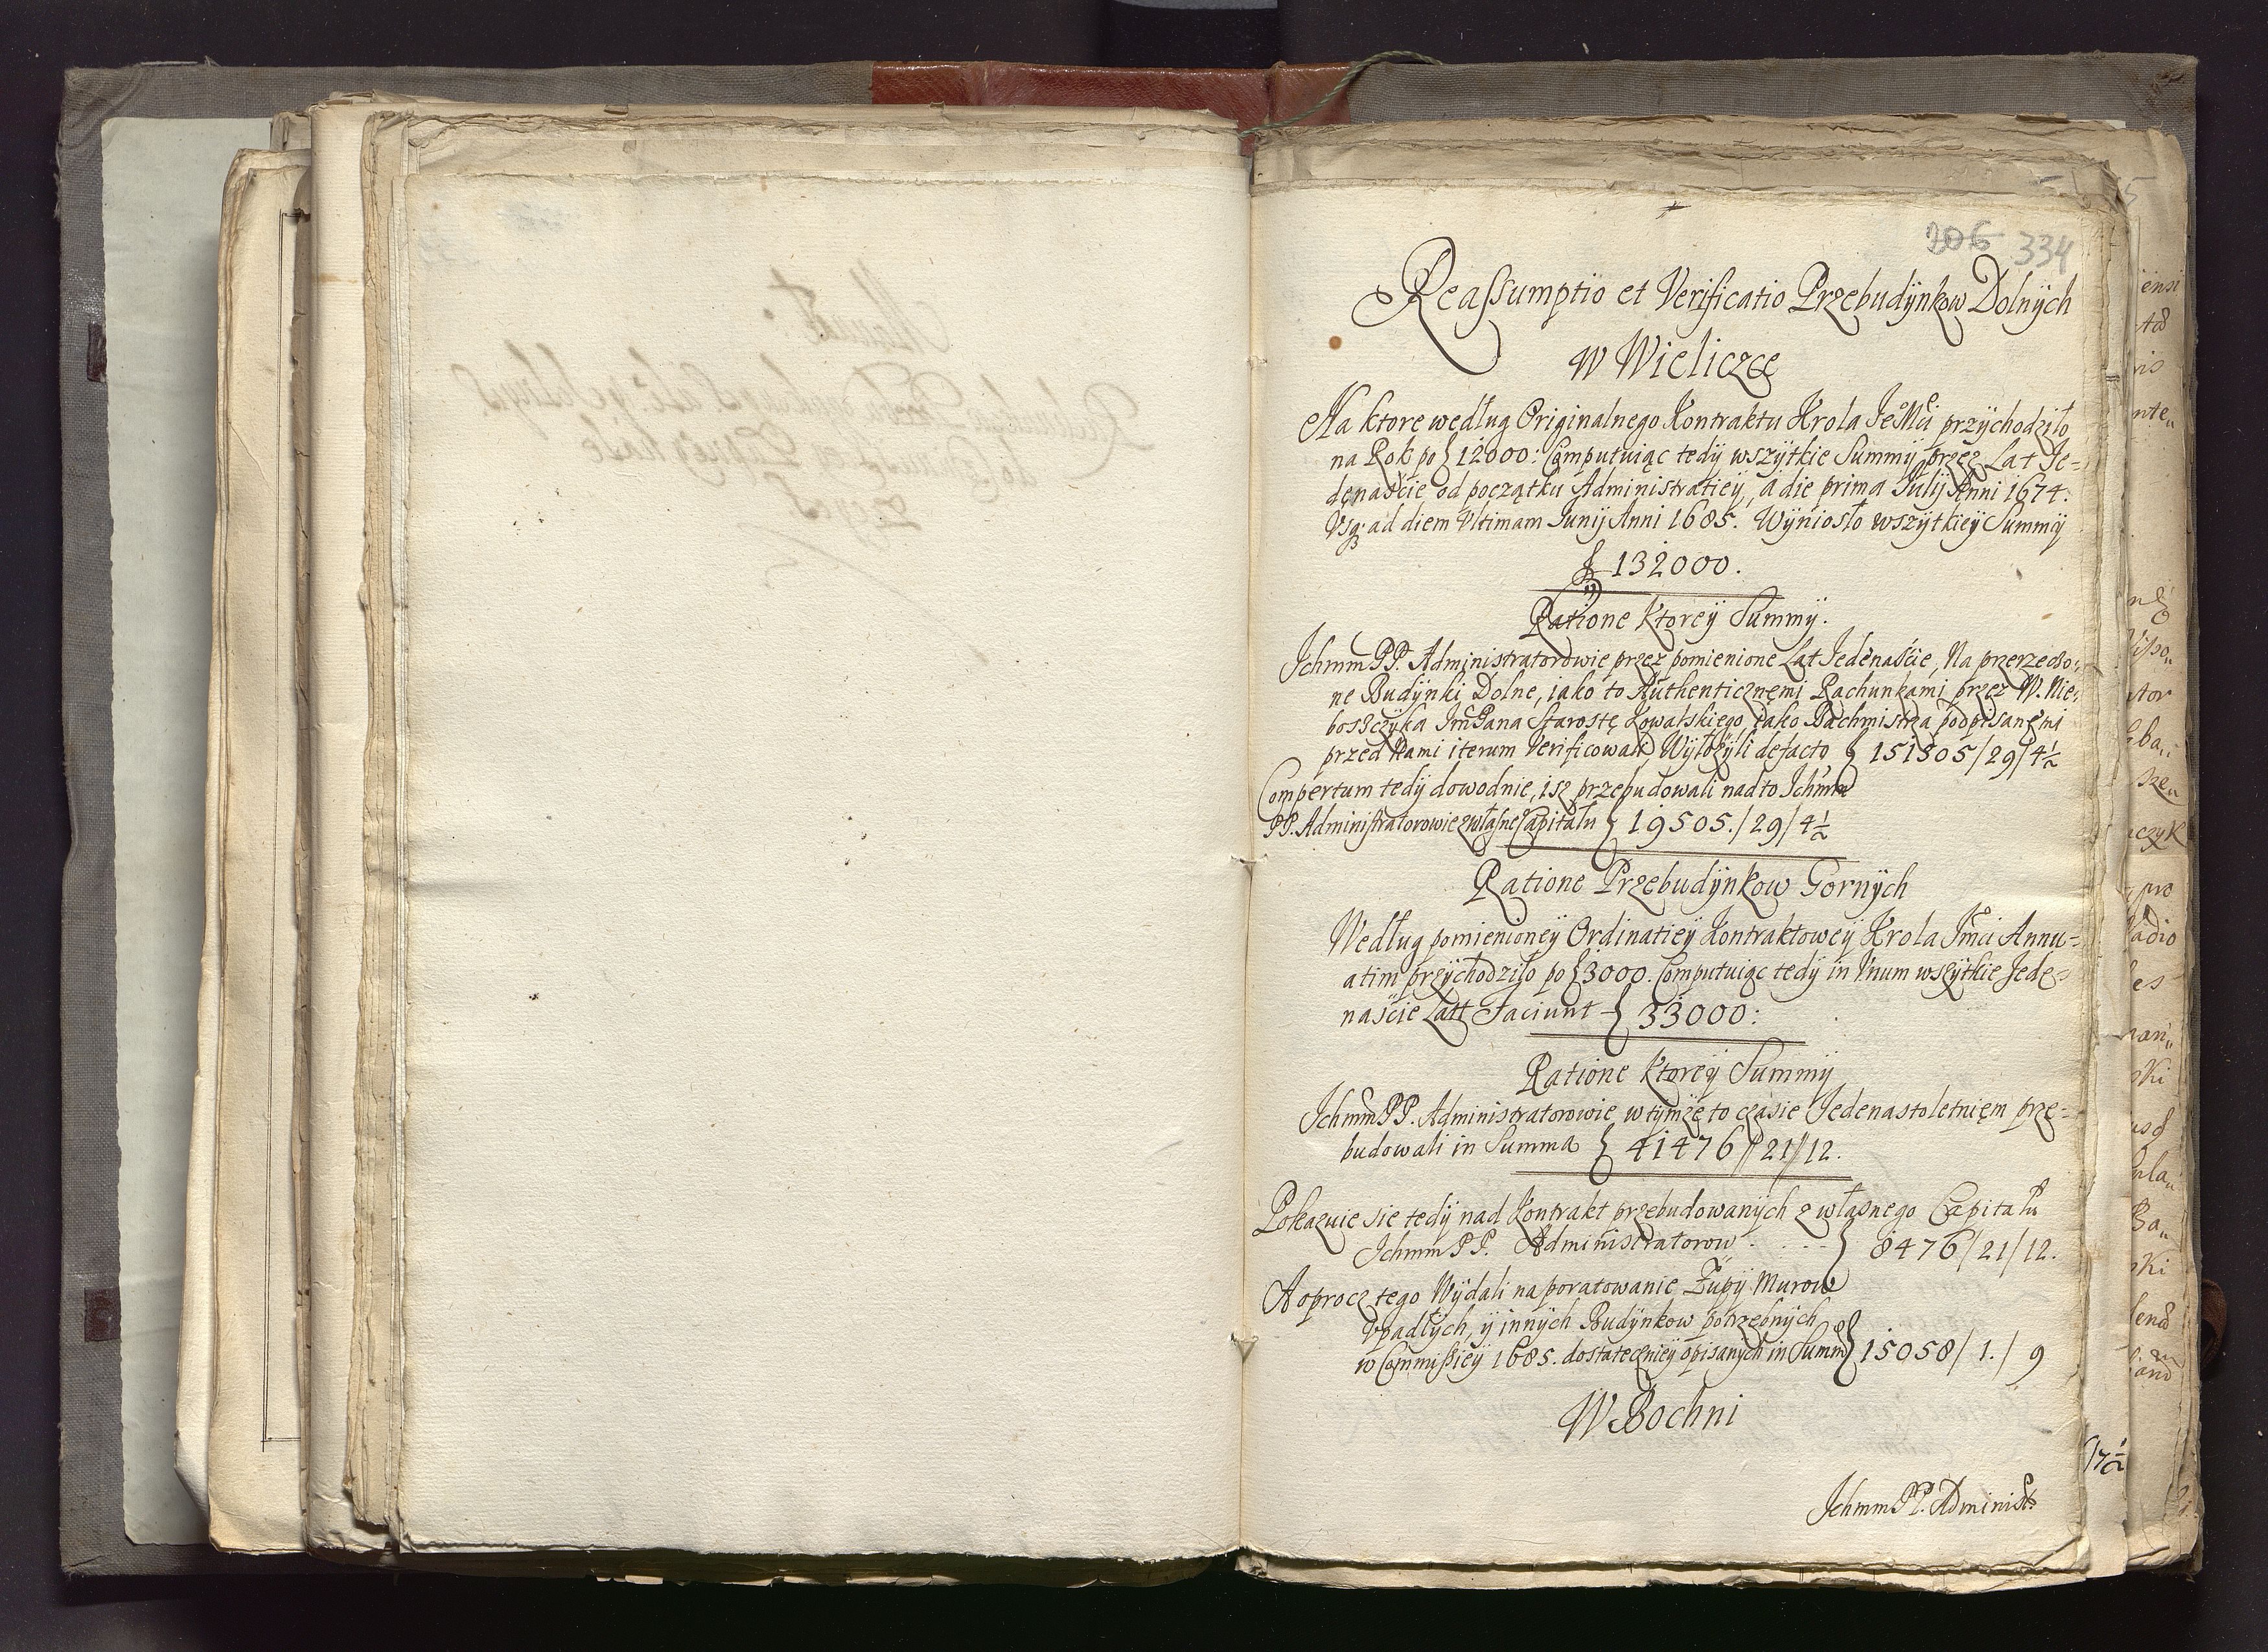 206 334
Reassumptio et Verificatio Przebudÿnkow Dolnÿch
W Wieliczcę
Na ktore według Originalnego Kontraktu Krola JeoMci przÿchodziło
na Rok po 12000: Computuiąc tedÿ wszÿtkie Summÿ przez Lat Je-
denaście od początku Administratieÿ, a die prima Julij Anni 1674.
Vsq; ad diem Vltimam Junij Anni 1685. Wÿniosło wszÿtkieÿ Summÿ
132000.
Ratione Ktoreÿ Summÿ.
Jchmm PP. Administratorowie przez pomienione Lat Jedenaście, Na przerzeczo-
ne Budÿnki Dolne, iako to Authenticznęmi Rachunkami przez W. Nie-
boszczÿka JmPana Starostę Kowalskiego, iako Bachmistrza podpisanęmi
przed Nami iterum Verificowali, Wÿłożÿli defacto 151505/29/4½
Compertum tedÿ dowodnie, isz przebudowali nadto Jchmm
PP. Administratorowie z własne Capitału 19505./29/4½
Ratione Przebudÿnkow Gornÿch
Według pomienioneÿ Ordinatieÿ Kontraktoweÿ Krola Jmci Annu-
atim przÿchodziło po 3000. Computuiąc tedÿ in Vnum wszÿtkie Jede-
naście Latt Faciunt 33000:
Ratione Ktoreÿ Summÿ
Jchmm PP. Administratorowie w tÿmże to czasie Jedenastoletnięm prze-
budowali in Summa 41476//21//12.
Pokazuie sie tedÿ nad Kontrakt przebudowanÿch z własnego Capitału
Jchmm PP. Administratorow 8476/21/12.
A oprocz tego Wÿdali na poratowanie Żupÿ Murow
Vpadłÿch, ÿ innÿch Budÿnkow potrzebnÿch
w Commissieÿ 1685. dostateczniej opisanÿch in Summa 15058/1./9
W Bochni
Jchmm PP. Administr.